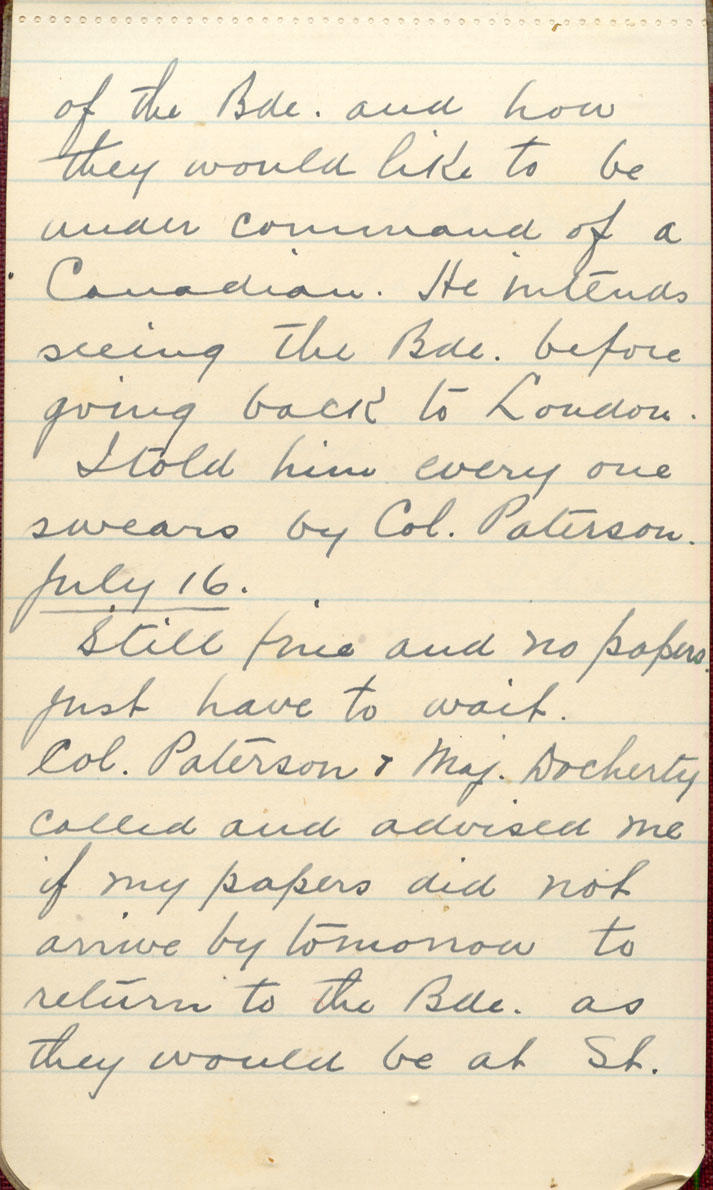 of the Bde. and how
they would like to be
under command of a
Canadian. He intends
seeing the Bde. before
going back to London.
I told him every one
swears by Col. Paterson.
July 16.
Still fine and no papers.
just have to wait.
Col. Paterson & Maj. Docherty
called and advised me
if my papers did not
arrive by tomorrow to
return to the Bde. as
they would be at St.